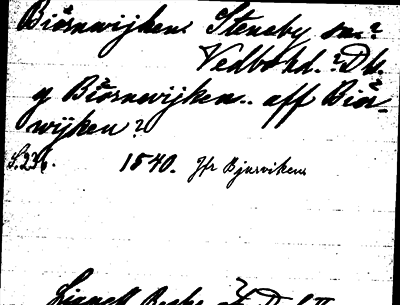 Biörnewijken. Steneby sn.?
Vedbo hd.? Dls.
g Biörnewijken.. aff Biör-
wijken?
S. 236. 1540. Jfr Bjurviken